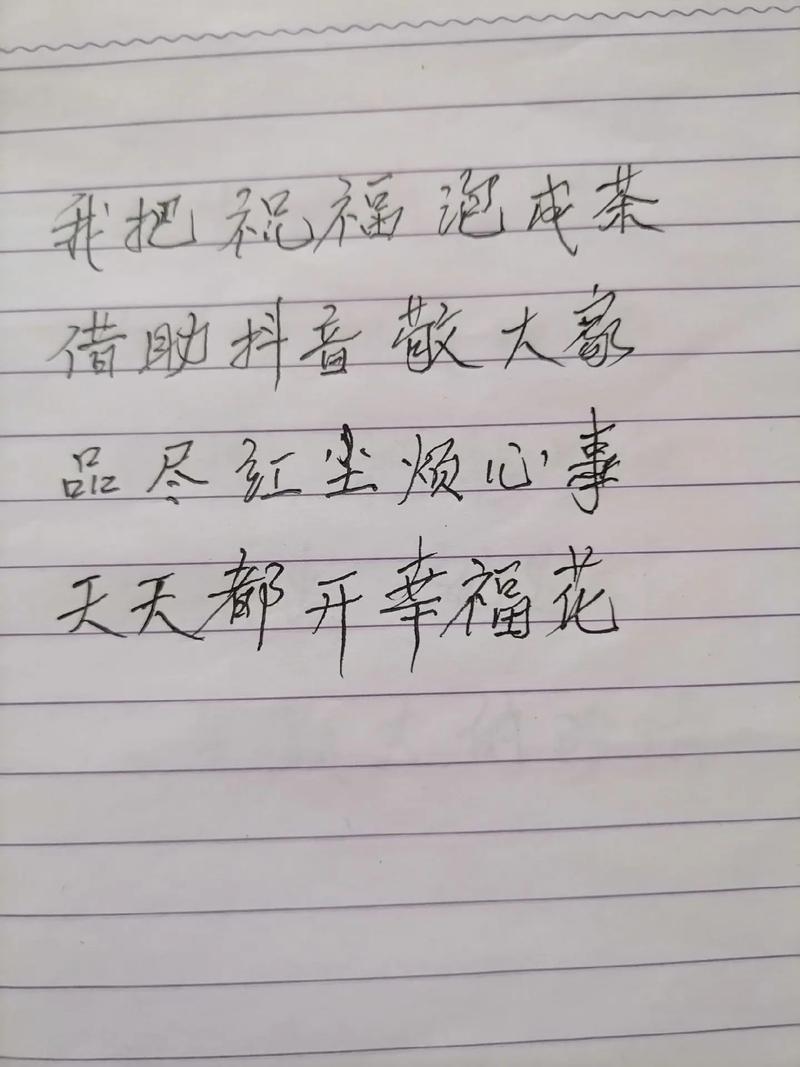 我把祝福泡成茶
借助抖音敬大家
品尽红尘烦心事
天天都开幸福花